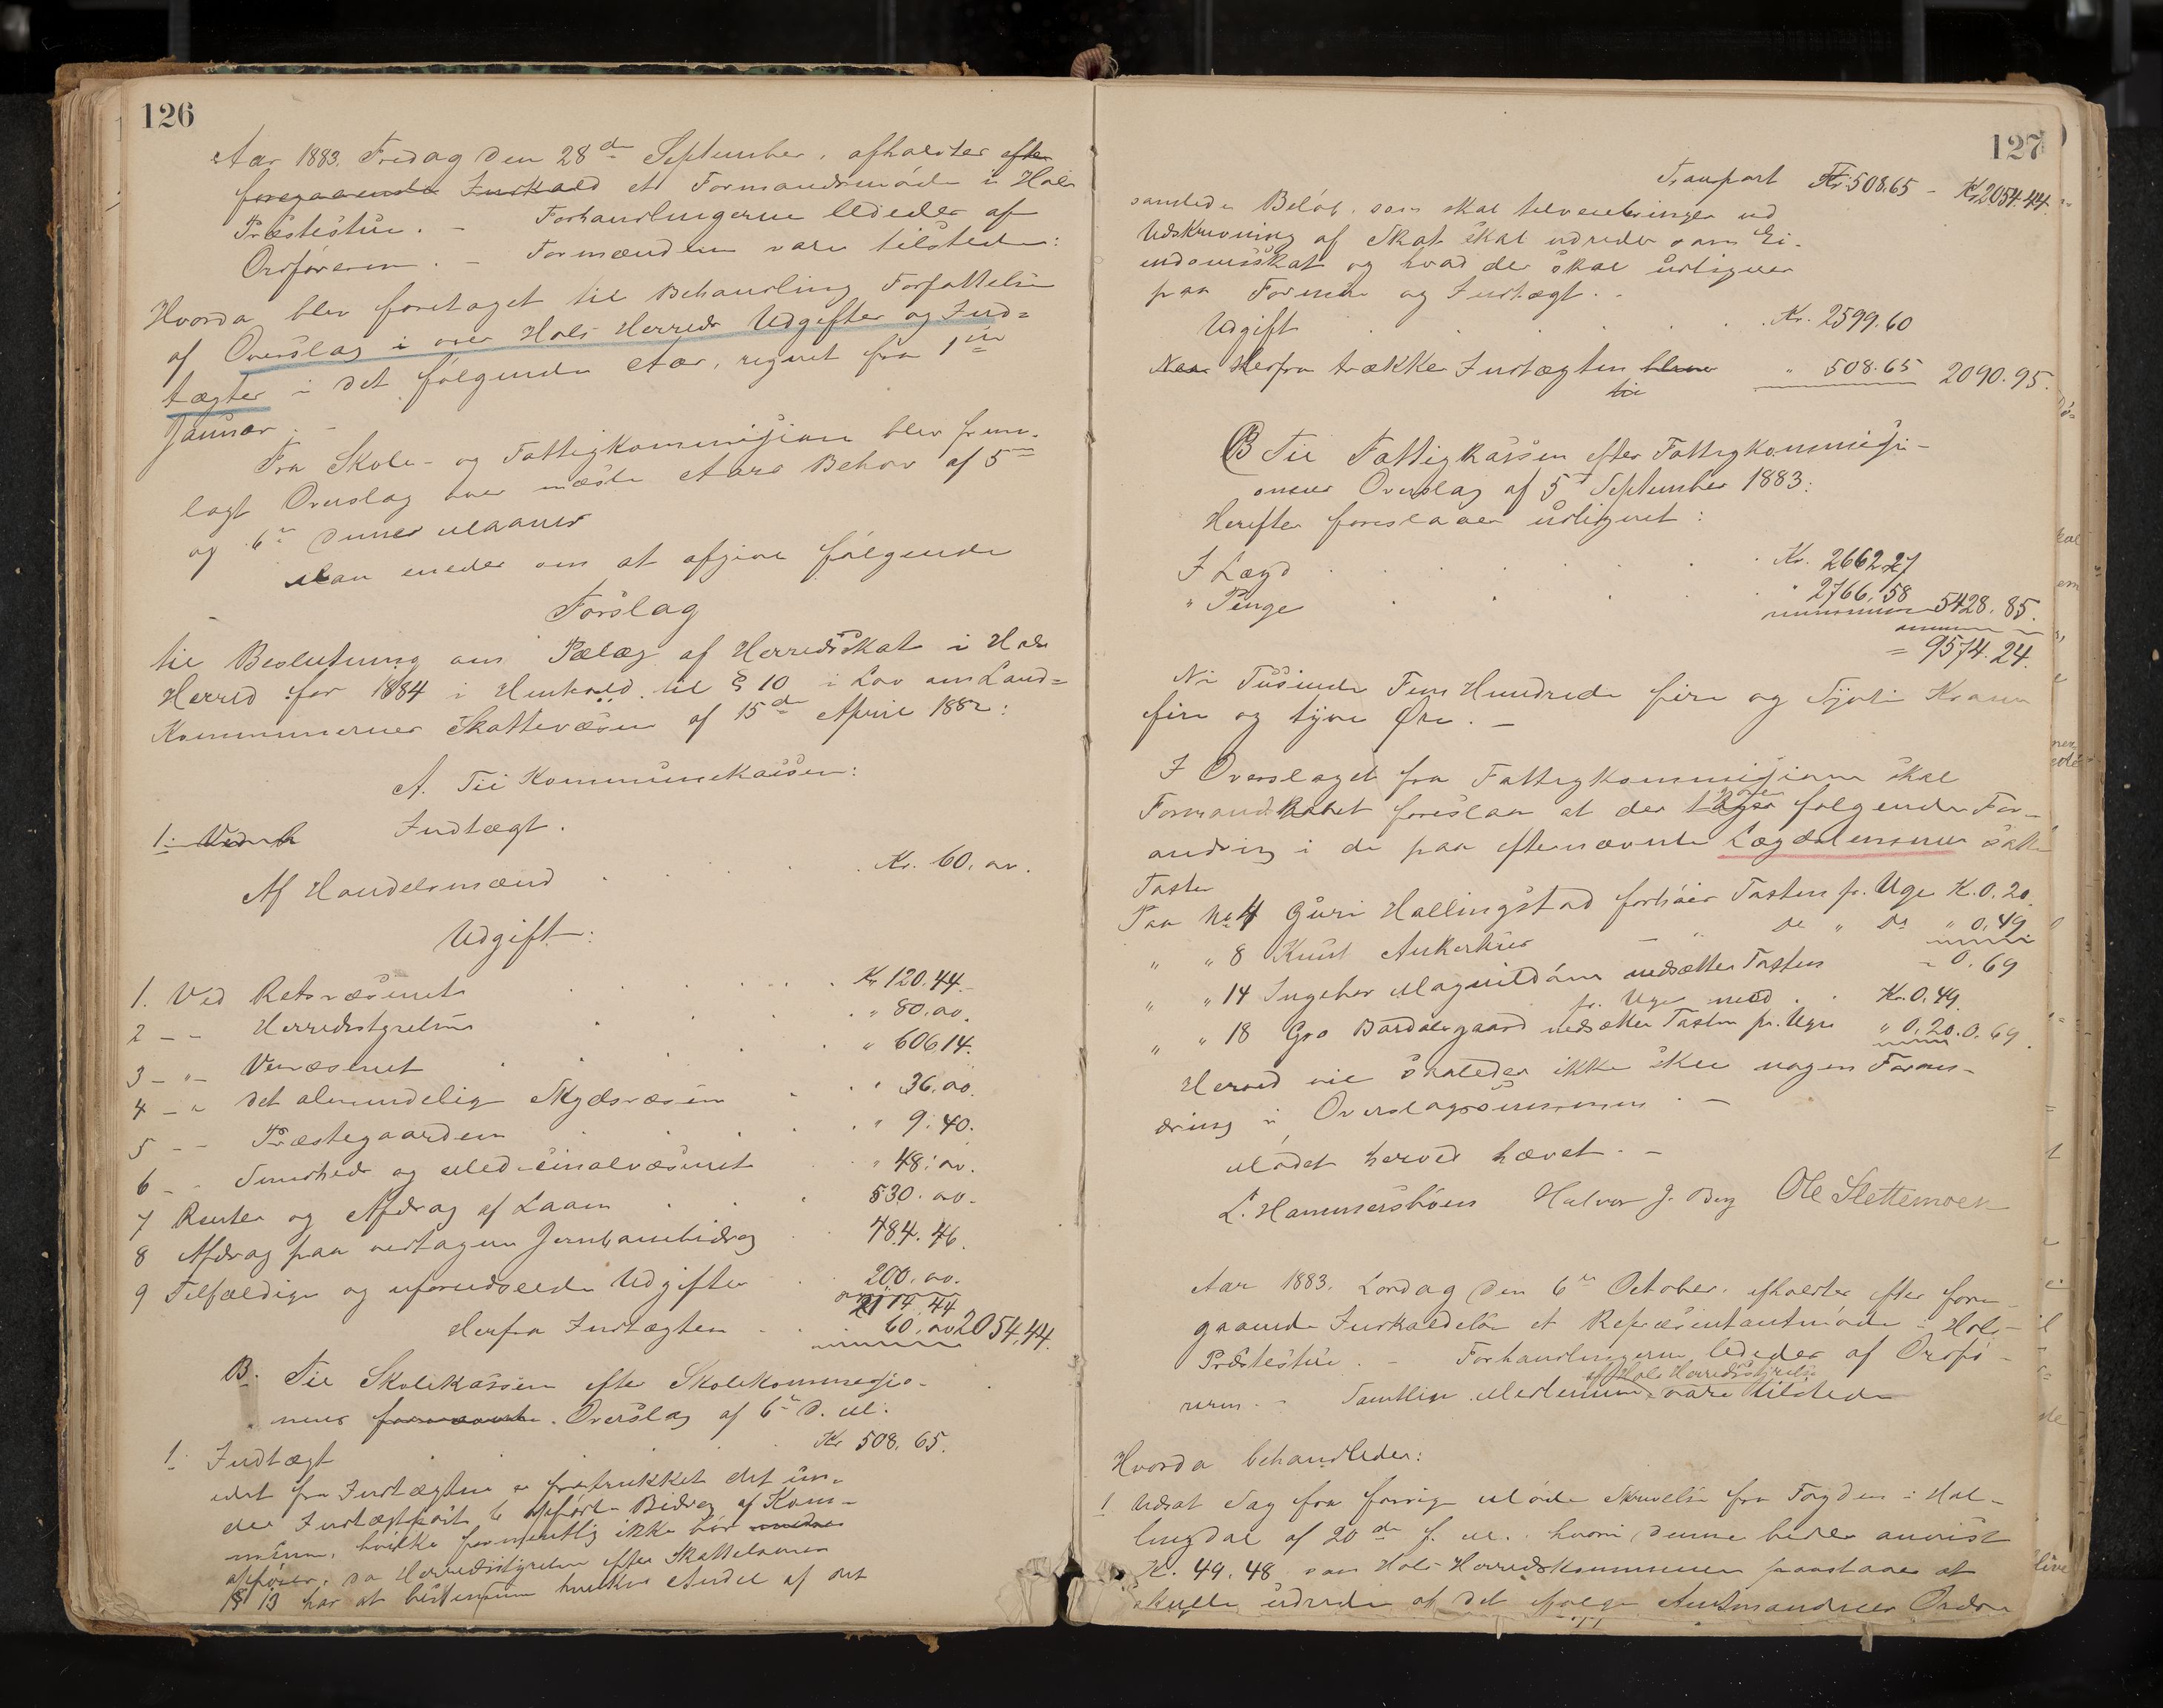 126
Aar 1883, Fredag den 28de September, afholdtes efter
foregaaende Indkald et Formandsmøde i Hols
Præstestue. – Forhandlingerne lededes af
Ordføreren. – Formændene vare tilstede:
Hvorda blev foretaget til Behandling Forfattelse
af Overslag i over Hols Herreds Udgifter og Ind=
tægter i det følgende Aar, regnet fra 1ste
Januar. –
Fra Skole- og Fattigkommisjionen blev frem-
lagt Overslag over næste Aars Behov af 5te
og 6te dennes Maaned
Man enedes om at afgive følgende
Forslag
til Beslutning om Paalæg af Herredsskat i Hols
Herred for 1884 i Henhold til § 10 i Lov om Land=
Kommunernes Skattevæsen af 15de April 1882:
A. Til Kommunekassen:
1: Ved R Indtægt.
Af Handelsmænd . . . . Kr. 60. oo.
Udgift:
1. Ved Retsvæsenet . . . . . Kr 120.44.
2 – – Herredsstyrelsen . . . " 80. oo.
3 – " – Veivæsenet . . . . " 606.14.
4 – " det almindelige Skydsvæsen . . " 36. oo.
5 – – Præstegaarden . . . . " 9. 40.
6 – – Sundheds og Medicinalvæsenet . . " 48. oo.
7 Renter og Afdrag af Laan . . . 530. oo.
8 Afdrag paa vedtagen Jernbanebidrag . . 484. 46.
9 Tilfældige og uforudseede Udgifter . . 200. oo.
2114. 44
Herfra Indtægten . . . 60. oo 2054,44.
B. Til Skolekassen efter Skolekommisjio-
nens Overslag af 6te d. M.
1. Indtægt . . . . Kr 508. 65.
idet fra Indtægten er fratrukket det un-
der Indtægtspost 6 opførte Bidrag af Kom-
munen, hvilke formentlig ikke bør
opføres, da Herredsstyrelsen efter Skatteloven
§ 13 har at bestemme hvilken Andel af det
127
Transport Kr. 508.65 – Kr 2054.44.
samlede Beløb, som skal tilveiebringes ved
Udskrivning af Skat skal udredes som Ei-
endomsskat og hvad der skal udlignes
paa Formue og Indtægt. .
Udgift . . . . . . Kr. 2599.60
Herfra trækkes Indtægten " 508.65 2090.95.
B Til Fattigkassen efter Fattigkommisji-
onens Overslag af 5te September 1883:
Herefter foreslaaes udlignet:
I Lægd . . . . . . Kr. 2662.27
" Penge . . . . " 2766.58 5428.85.
= 9574.24.
Ni Tusinde Fem Hundrede fire og Sytti Kroner
fire og tyve Øre. –
I Overslaget fra Fattigkommisjionen skal
Formandskabet foreslaa at der gjøres følgende For-
andring i de paa efternævnte Lægdslemmer satte
Taster
Paa No 4 Guri Hallingstad forhøies Tasten pr. Uge K. 0. 20.
" " 8 Knud Aukerhus – " do " do " 0,49
– 0. 69
" " 14 Ingebor Magnildøen nedsættes Tasten
pr. Uge med . . Kr. 0.49.
" " 18 Gro Bardalsgaard nedsættes Tasten pr. Uge " 0.20. 0.69.
Herved vil saaledes ikke skee nogen Foran-
dring i Overslagssummen. –
Mødet herved hævet. –
L. Hammersbøen Halvor J. Berg Ole Slettemoen
Aar 1883. Lørdag den 6te October, afholdtes efter fore-
gaaende Indkaldelse et Repræsentantmøde i Hols
Præstestue. – Forhandlingerne lededes af Ordfø-
af Hols Herredsstyrelse
reren. – Samtlige Medlemmer vare tilstede
Hvorda behandledes:
1 Udsat Sag fra forrige Møde Skrivelse fra Fogden i Hal-
lingdal af 20de f. M., hvori denne beder anvist
Kr. 49,48 som Hols Herredskommune paastaaes at
skulle udrede af det ifølge Amtmandens Ordre